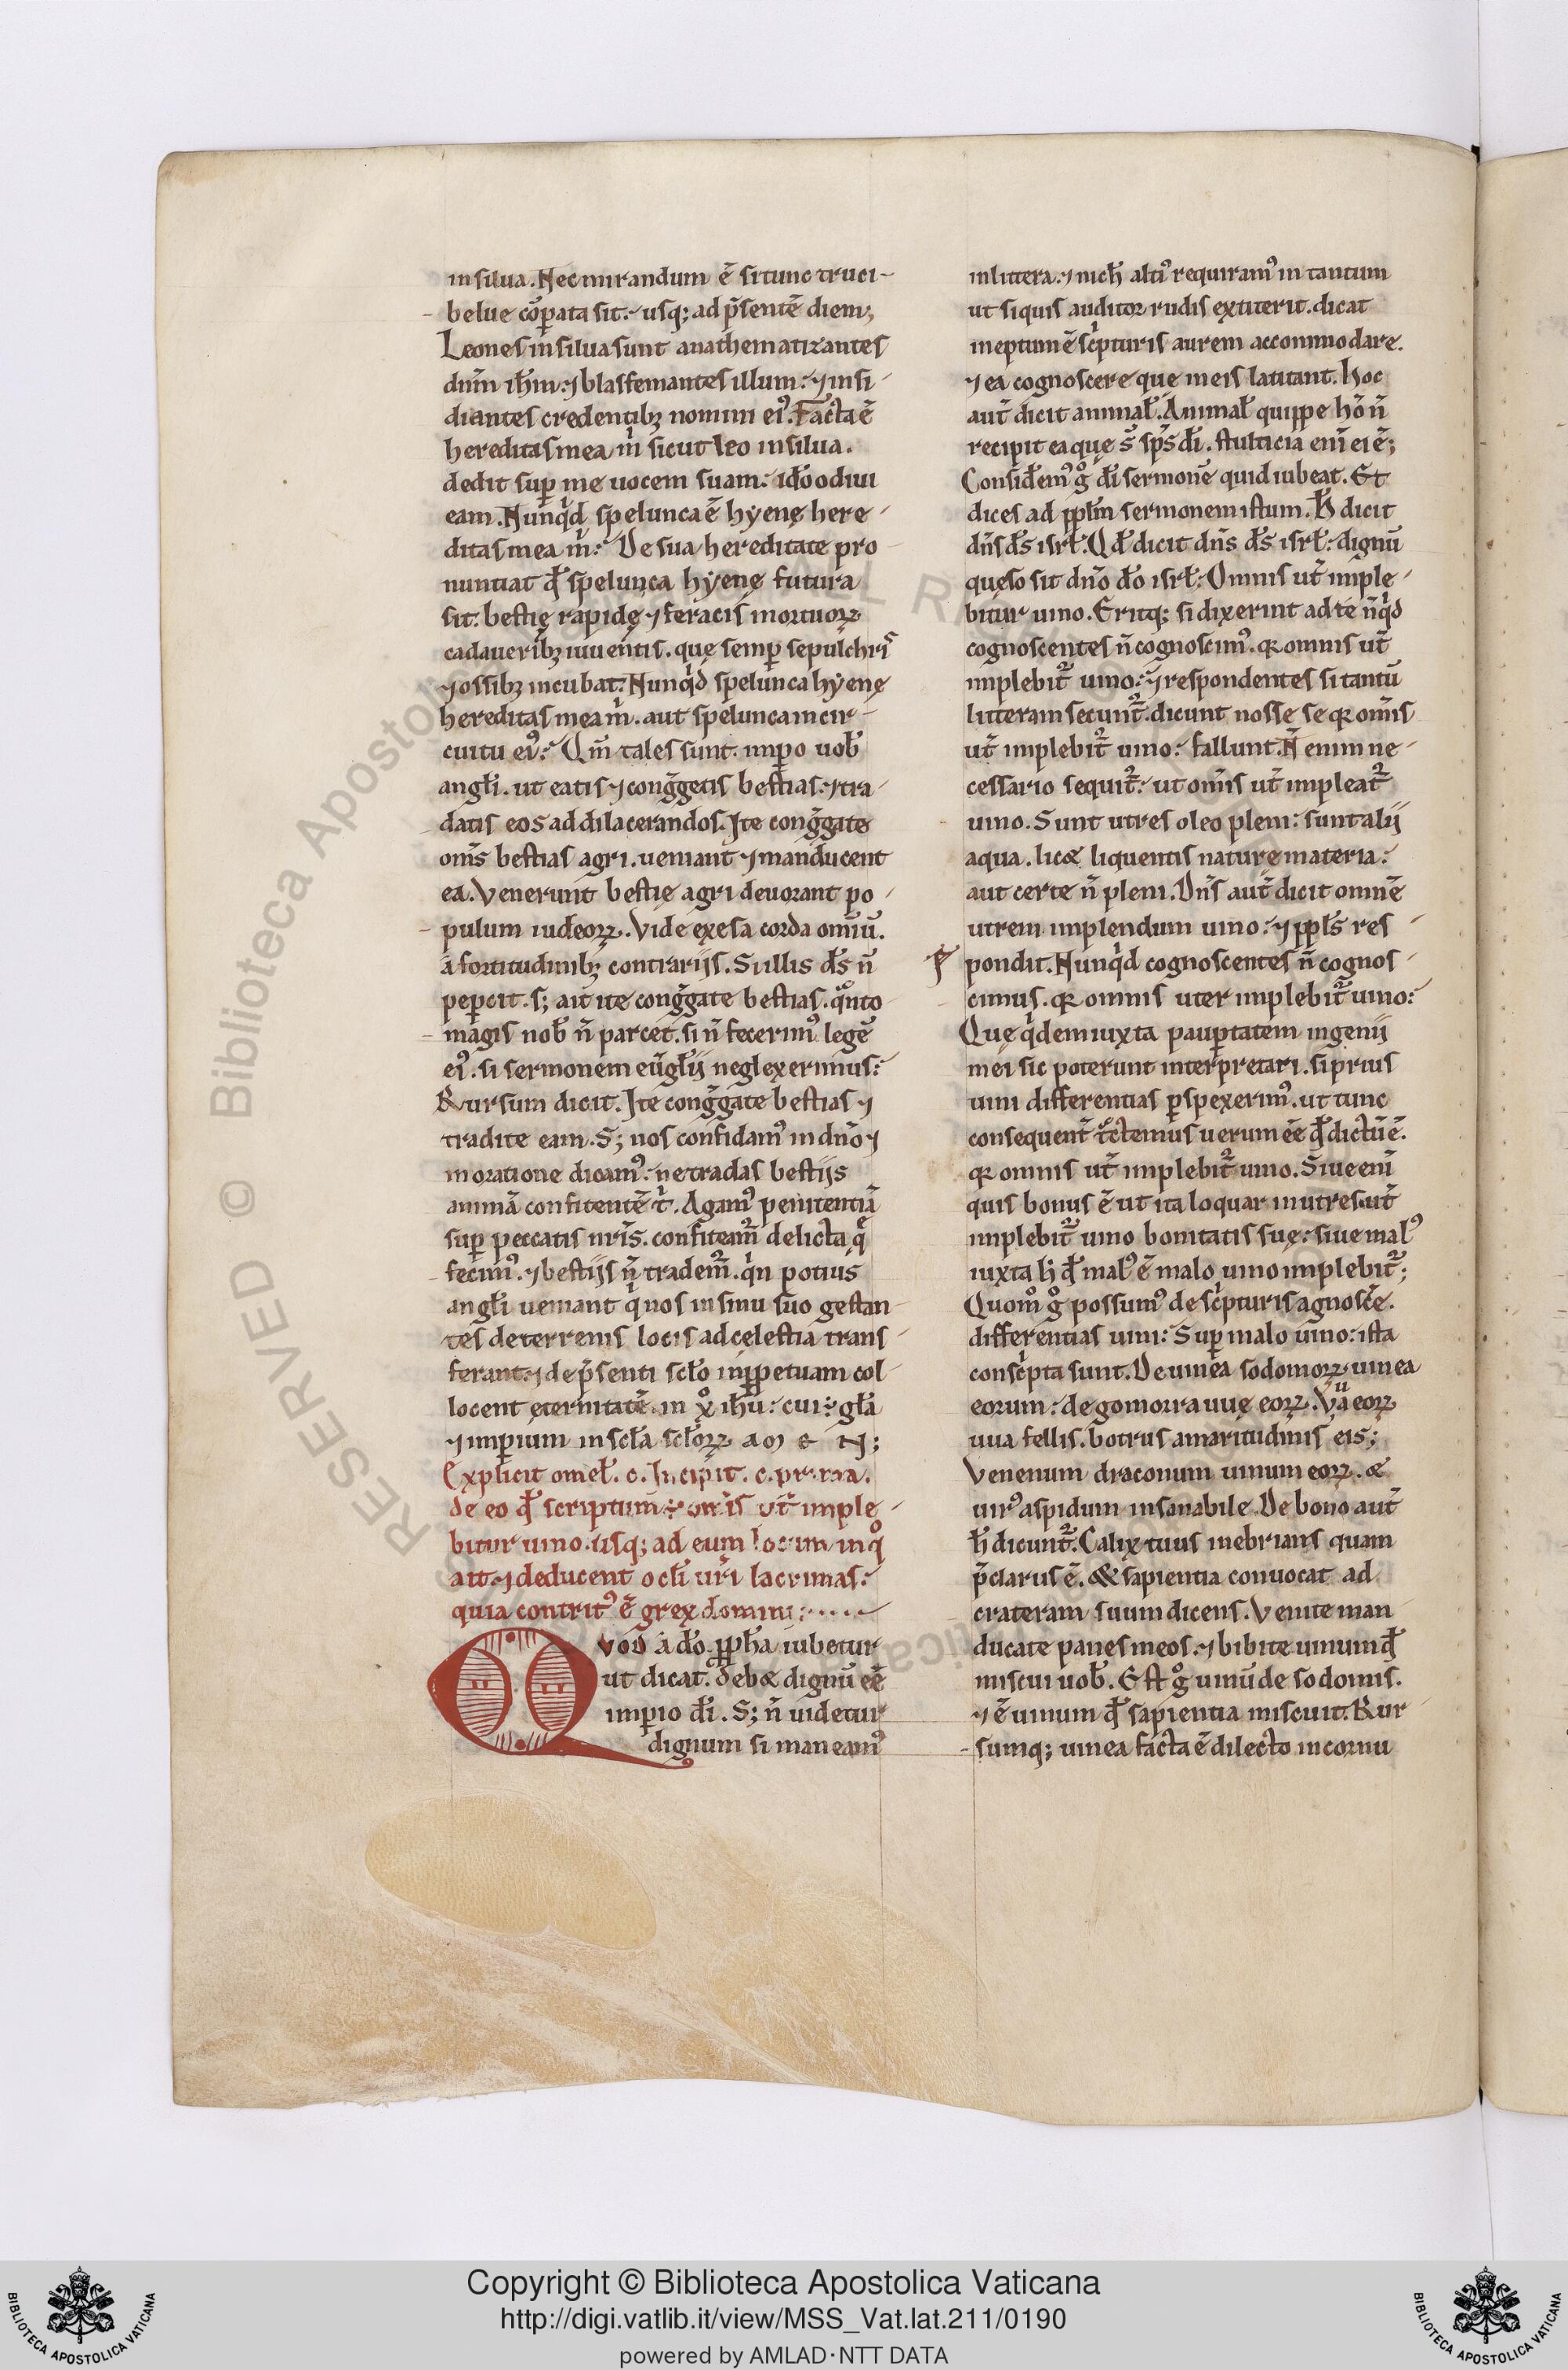 in silua. Nec mirandum ē si tunc truci-
belue cōparata sit. usq; ad p̄sentē diem;
Leones in silua sunt anathematizantes
dnm̄ ihm̄. ⁊ blasfemantes illum. ⁊ insi-
diantes credentibꝫ nomini eiꝰ. Facta ē
hereditas mea m̍ sicut leo in silua.
dedit suꝑ me uocem suam. iđo odiui
eam. Nunq̍d spelunca ē hyenę here-
ditas mea m̍. De sua hereditate pro
nuntiat qđ spelunca hyenę futura
sit. bestię rapidę ⁊ feracis mortuoꝝ
cadaueribꝫ iuuentis. quę semꝑ sepulchris
⁊ ossibꝫ incubat. Nunq̍d spelunca hyenę
hereditas mea m̍. aut spelunca in cir-
cuitu eiꝰ. Qm̄ tales sunt. imꝑo uob̄
angl̄i. ut eatis ⁊ cong̃getis bestias. ⁊ tra-
datis eos ad dilacerandos. Ite cong̃gate
oms̄ bestias agri. ueniant ⁊ manducent
ea. Venerunt bestię agri deuorant po-
pulum iudeoꝝ. Vide exesa corda omiū.
a fortitudinibꝫ contrarijs. Si illis ds̄ n̄
peꝑcit. s; ait ite cong̃gate bestias. q̃nto
magis nob̄ n̄ parcet. si n̄ fecerimꝰ legē
eiꝰ. si sermonem eu̅gl̄ij neglexerimus.
Rursum dicit. Ite cong̃gate bestias ⁊
tradite eam. S; nos confidamꝰ in dn̄o ⁊
in oratione dicamꝰ. ne tradas bestijs
animā confitentē t̍. Agamꝰ penitentiā
suꝑ peccatis nr̄is. confiteam̄ delicta q̨
fecimꝰ. ⁊ bestijs n̄ tradem̄. q̍n potius
angl̄i ueniant q̍ nos in sinu suo gestan-
tes de terrenis locis ad celestia trans-
ferant. ⁊ de p̄senti scl̄o in ꝑpetuam col-
locent ęternitatē. in xp̊ ihū. cui ÷ gl̄a
⁊ imꝑium in scl̄a scl̄oꝝ a m e N;
Explicit omel̄. c. Incipit. c. prima.
de eo qđ scriptum ÷ omīs ut̄ imple-
bitur uino. usq; ad eum locum in q̊
ait. ⁊ deducent ocl̄i ur̄i lacrimas.
quia contritꝰ ē grex domini;
Qvod a dō ꝓph̄a iubetur
ut dicat. debæ dignū eē
imꝑio dī. S; n̄ uidetur
dignum si maneamꝰ
in littera. ⁊ nich̄ altiꝰ requiramꝰ in tantum
ut siquis auditor rudis extiterit. dicat
ineptum ē sc̍pturis aurem accommodare.
⁊ ea cognoscere que in eis latitant. Hoc
aut̄ dicit animal̄. Animal̄ quippe hō n̄
recipit ea quę s̄ sps̄ dī. stulticia enī ei ē;
Considem̄ꝰ g̊ dī sermonē quid iubeat. Et
dices ad ppl̄m sermonem istum. H̄ dicit
dn̄s ds̄ isrl̄. Qđ dicit dn̄s ds̄ isrl̄. dignū
quęso sit dn̄o dō isrl̄. Omnis ut̄ imple-
bitur uino. Eritq; si dixerint ad te n̄q̍d
cognoscentes n̄ cognoscimꝰ. qꝛ omnis ut̄
implebit᷑ uino. ⁊ respondentes si tantū
litteram secunt᷑. dicunt nosse se qꝛ omīs
ut̄ implebit᷑ uino. fallunt. N̄ enim ne-
cessario sequit᷑. ut omīs ut̄ impleat᷑
uino. Sunt utres oleo pleni. sunt alij
aqua. licæ liquentis naturę materia.
aut certe n̄ pleni. Dn̄s aut̄ dicit omnē
utrem implendum uino. ⁊ ppl̄s res-
pondit. Nunq̍d cognoscentes n̄ cognos-
cimus. qꝛ omnis uter implebit᷑ uino.
Quę q̍dem iuxta pauꝑtatem ingenij
mei sic poterunt interpretari. si prius
uini differentias ꝑspexerimꝰ. ut tunc
consequent̄ t̄ctemus uerum eē qđ dictū ē.
qꝛ omnis ut̄ implebit᷑ uino. Siue enī
quis bonus ē ut ita loquar in utres. ut̄
implebit᷑ uino bonitatis suę. siue malꝰ
iuxta h̍ qđ malꝰ ē malo uino implebit᷑;
Quom̊ g̊ possumꝰ de sc̍pturis agnoscē.
differentias uini. Suꝑ malo uino. ista
consc̍pta sunt. De uinea sodomoꝝ uinea
eorum. de gomorra uuę eoꝝ. Vua eoꝝ
uua fellis. botrus amaritudinis eis;
Venenum draconum uinum eoꝝ. æ
uirꝰ aspidum insanabile. De bono aut̄
h̄ dicunt᷑. Calix tuus inebrians quam
p̄clarus ē. & sapientia conuocat ad
crateram suum dicens. Venite man
ducate panes meos. ⁊ bibite uinum qđ
miscui uob̄. Est g̊ uinū de sodomis.
⁊ ē uinum qđ sapientia miscuit. Rur
sumq; uinea facta ē dilecto in cornu
© Biblioteca Apostolica Vaticana
RESERVED
Copyright © Biblioteca Apostolica Vaticana
http://digi.vatlib.it/view/MSS_Vat.lat.211/0190
powered by AMLAD·NTT DATA
BIBLIOTECA APOSTOLICA VATICANA
BIBLIOTECA APOSTOLICA VATICANA